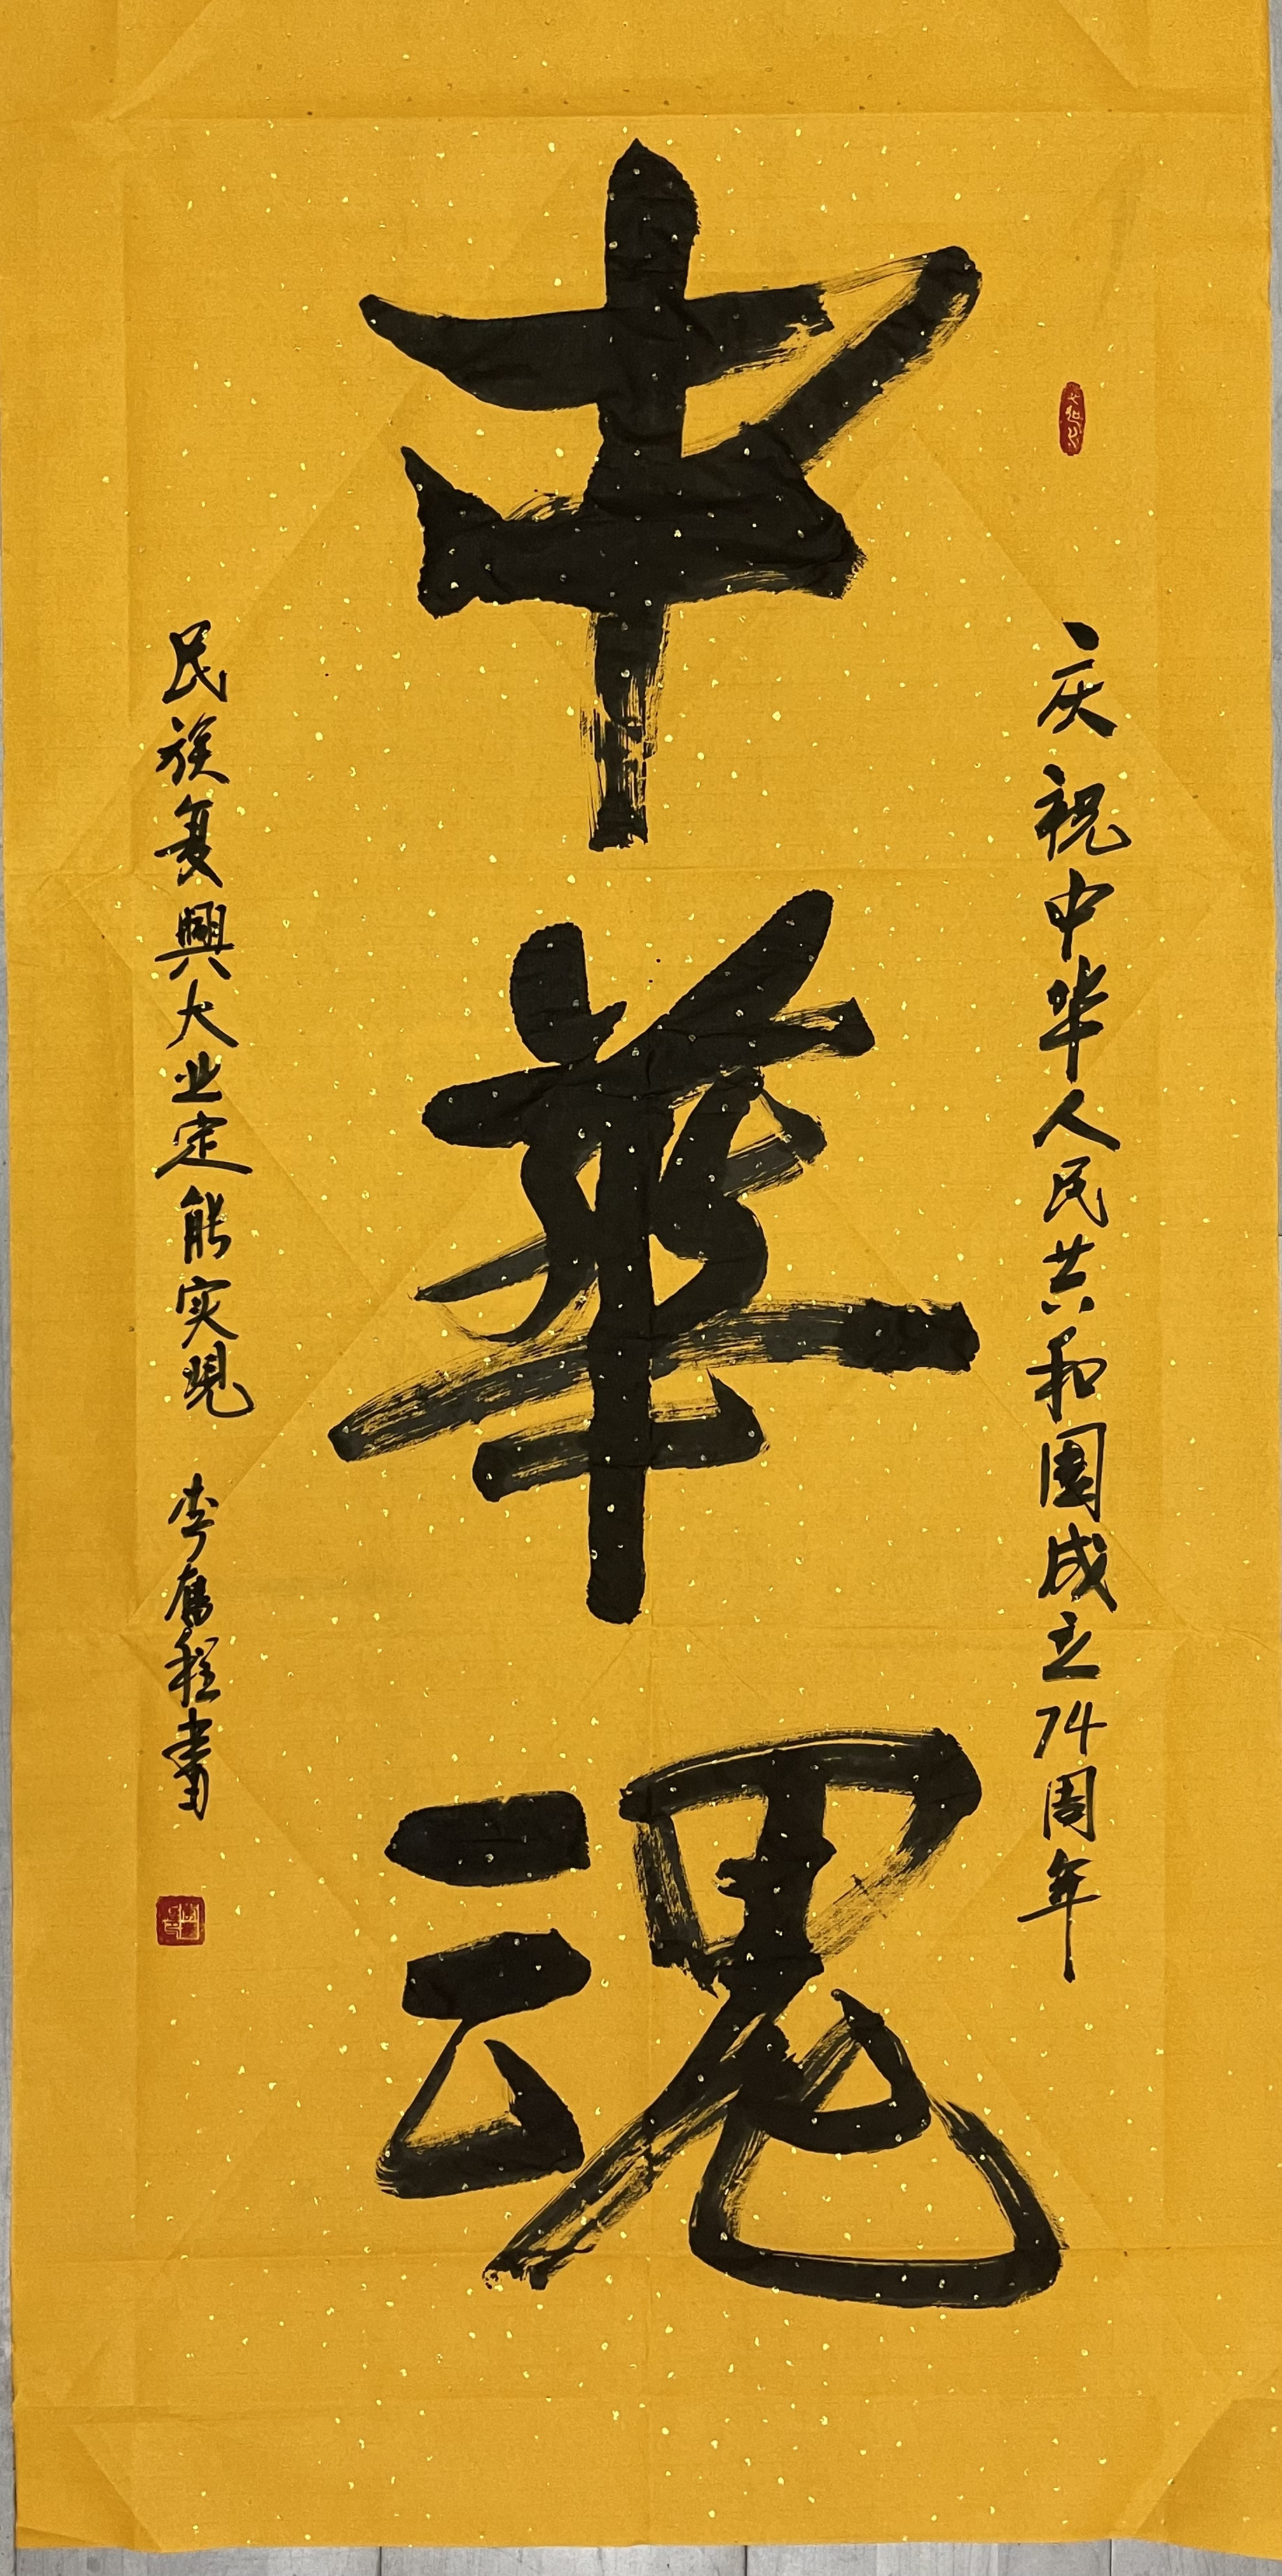 庆祝中华人民共和国成立74周年
中華魂
民族复興大业定能实現
李奮程書